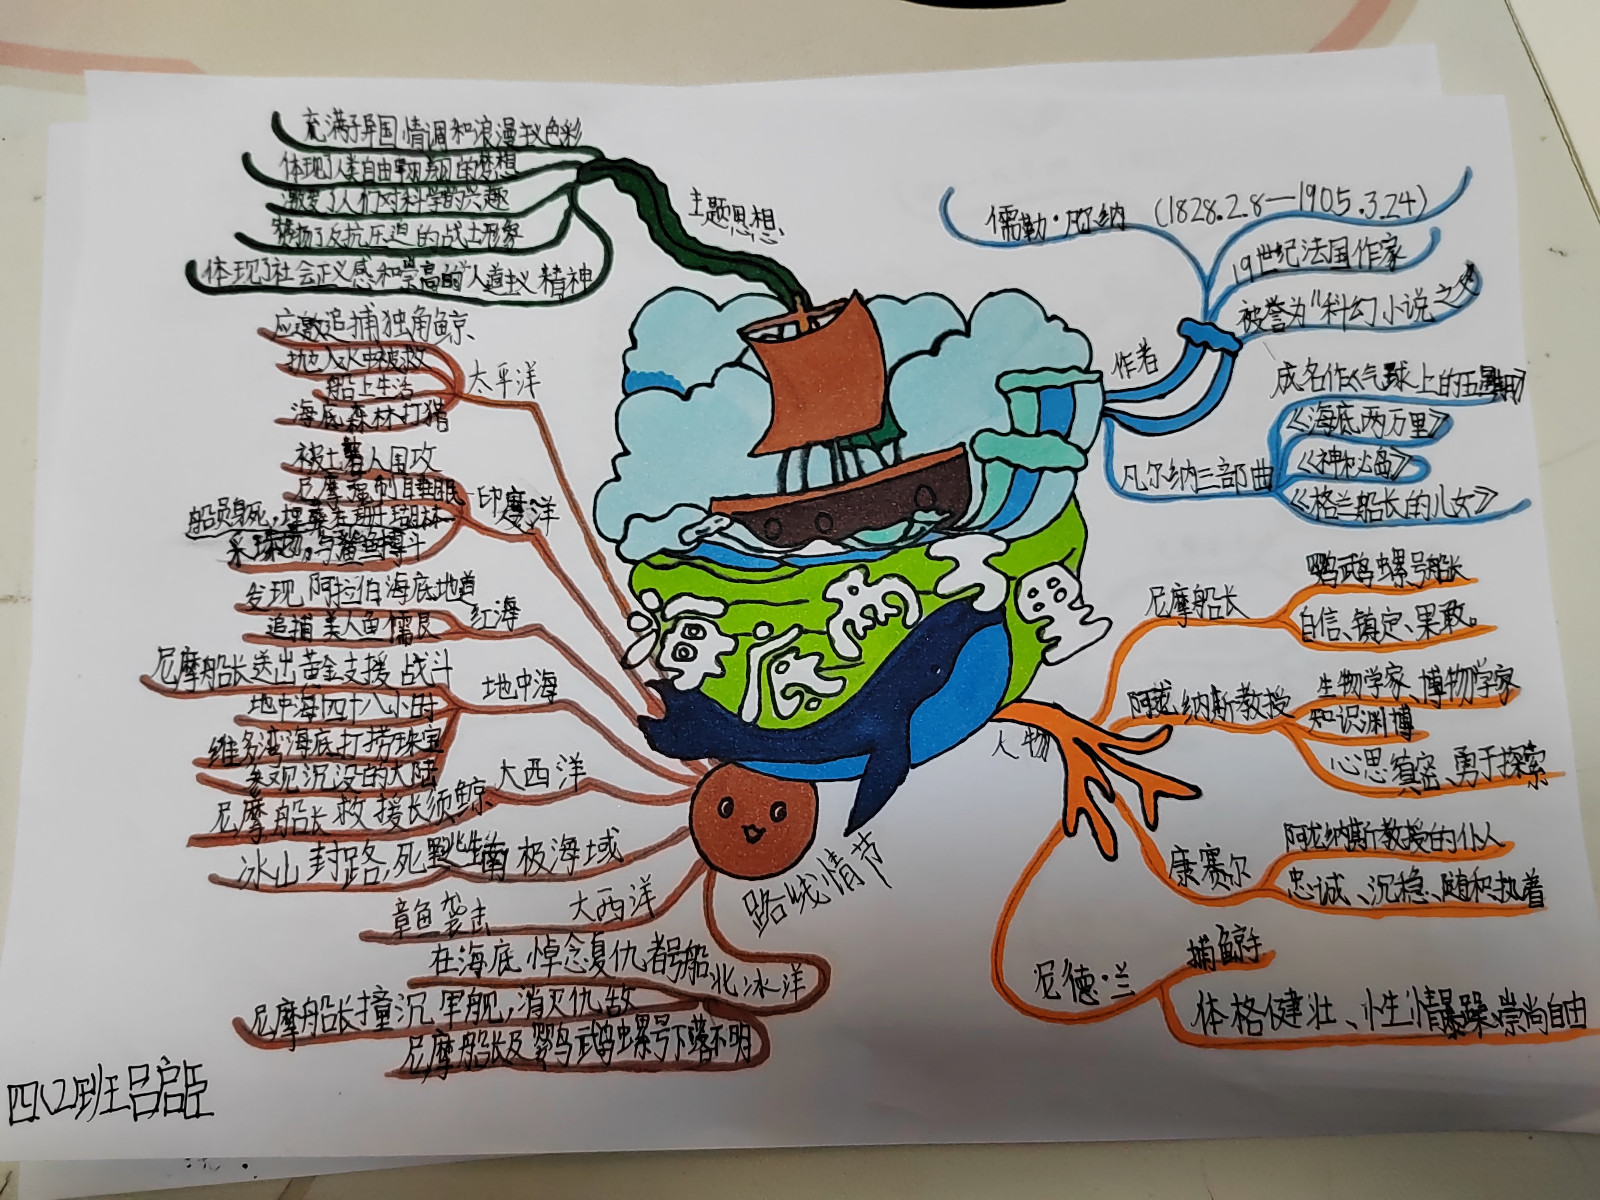 充满了异国情调和浪漫主义色彩
体现了人类自由翱翔的梦想
激发了人们对科学的兴趣
赞扬了反抗压迫的战士形象
体现了社会正义感和崇高的人道主义精神
主题思想
儒勒·凡尔纳 (1828.2.8—1905.3.24)
19世纪法国作家
被誉为"科幻小说之父
作者
成名作《气球上的五星期》
《海底两万里》
凡尔纳三部曲
《神秘岛》
《格兰船长的儿女》
应邀追捕独角鲸
抛入水中被救
太平洋
船上生活
海底森林打猎
被土著人围攻
尼摩强制睡眠
印度洋
船员身死,埋葬在珊瑚林
采珠场,与鲨鱼搏斗
发现阿拉伯海底地道
红海
追捕美人鱼儒艮
尼摩船长送出黄金支援战斗
地中海
地中海四十八小时
维多湾海底打捞珠宝
参观沉没的大陆
大西洋
尼摩船长救援长须鲸
冰山封路,死里逃生
南极海域
章鱼袭击
大西洋
在海底悼念复仇者号船
北冰洋
尼摩船长撞沉军舰,消灭仇敌
尼摩船长及鹦鹉螺号下落不明
路线情节
海底两万里
人物
尼摩船长
鹦鹉螺号船长
自信、镇定、果敢。
阿龙纳斯教授
生物学家、博物学家
知识渊博
心思缜密、勇于探索
康赛尔
阿龙纳斯教授的仆人
忠诚、沉稳、随和执着
尼德·兰
捕鲸手
体格健壮、性情暴躁、崇尚自由
四(2)班吕启臣